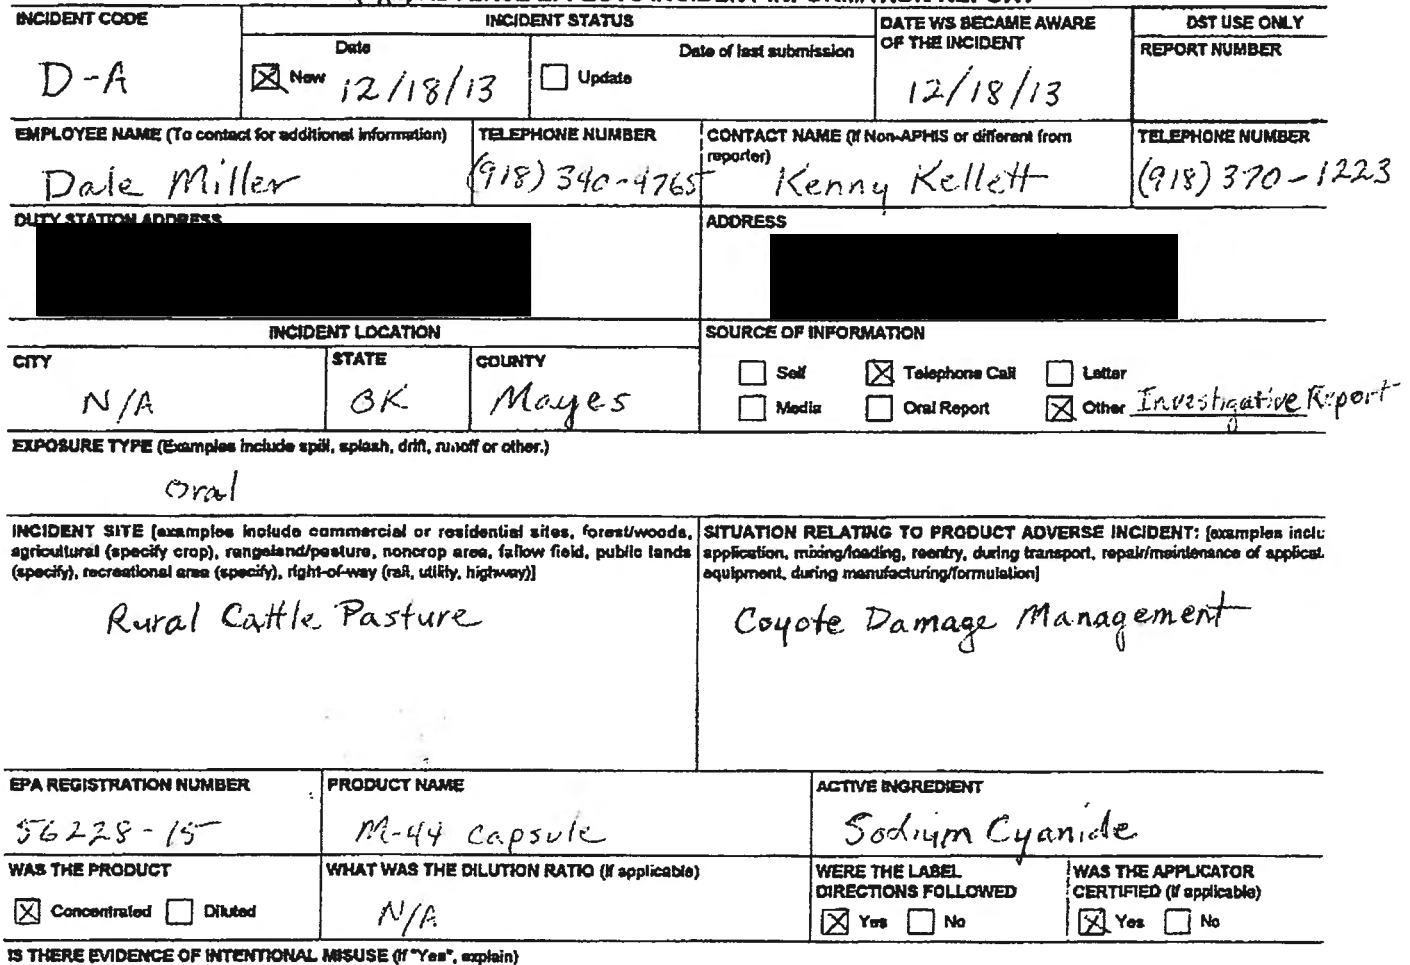 INCIDENT CODE
D-A
INCIDENT STATUS
Date
New 12/18/13
Date of last submission
Update
DATE WS BECAME AWARE
OF THE INCIDENT
12/18/13
DST USE ONLY
REPORT NUMBER
EMPLOYEE NAME (To contact for additional information)
Dale Miller
TELEPHONE NUMBER
(918) 340-4765
CONTACT NAME (If Non-APHIS or different from
reporter)
Kenny Kellett
TELEPHONE NUMBER
(918) 370-1223
DUTY STATION ADDRESS
ADDRESS
INCIDENT LOCATION
CITY
N/A
STATE
OK
COUNTY
Mayes
SOURCE OF INFORMATION
Self
Telephone Call
Letter
Media
Oral Report
Other Investigative Report
EXPOSURE TYPE (Examples include spill, splash, drift, runoff or other.)
Oral
INCIDENT SITE [examples include commercial or residential sites, forest/woods,
agricultural (specify crop), rangeland/pasture, noncrop area, fallow field, public lands
(specify), recreational area (specify), right-of-way (rail, utility, highway)]
Rural Cattle Pasture
SITUATION RELATING TO PRODUCT ADVERSE INCIDENT: [examples inclu
application, mixing/loading, reentry, during transport, repair/maintenance of applicat
equipment, during manufacturing/formulation]
Coyote Damage Management
EPA REGISTRATION NUMBER
56228-15
PRODUCT NAME
M-44 capsule
ACTIVE INGREDIENT
Sodium Cyanide
WAS THE PRODUCT
Concentrated
Diluted
WHAT WAS THE DILUTION RATIO (If applicable)
N/A
WERE THE LABEL
DIRECTIONS FOLLOWED
Yes
No
WAS THE APPLICATOR
CERTIFIED (If applicable)
Yes
No
IS THERE EVIDENCE OF INTENTIONAL MISUSE (If "Yes", explain)